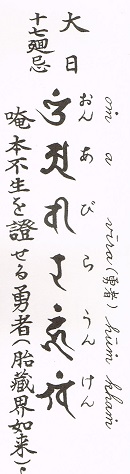 oṃ a vīra(勇者) hūṃ khaṃ
おん あ び ら うん けん
大日
十七廻忌
唵本不生を證せる勇者(胎藏界如來)。